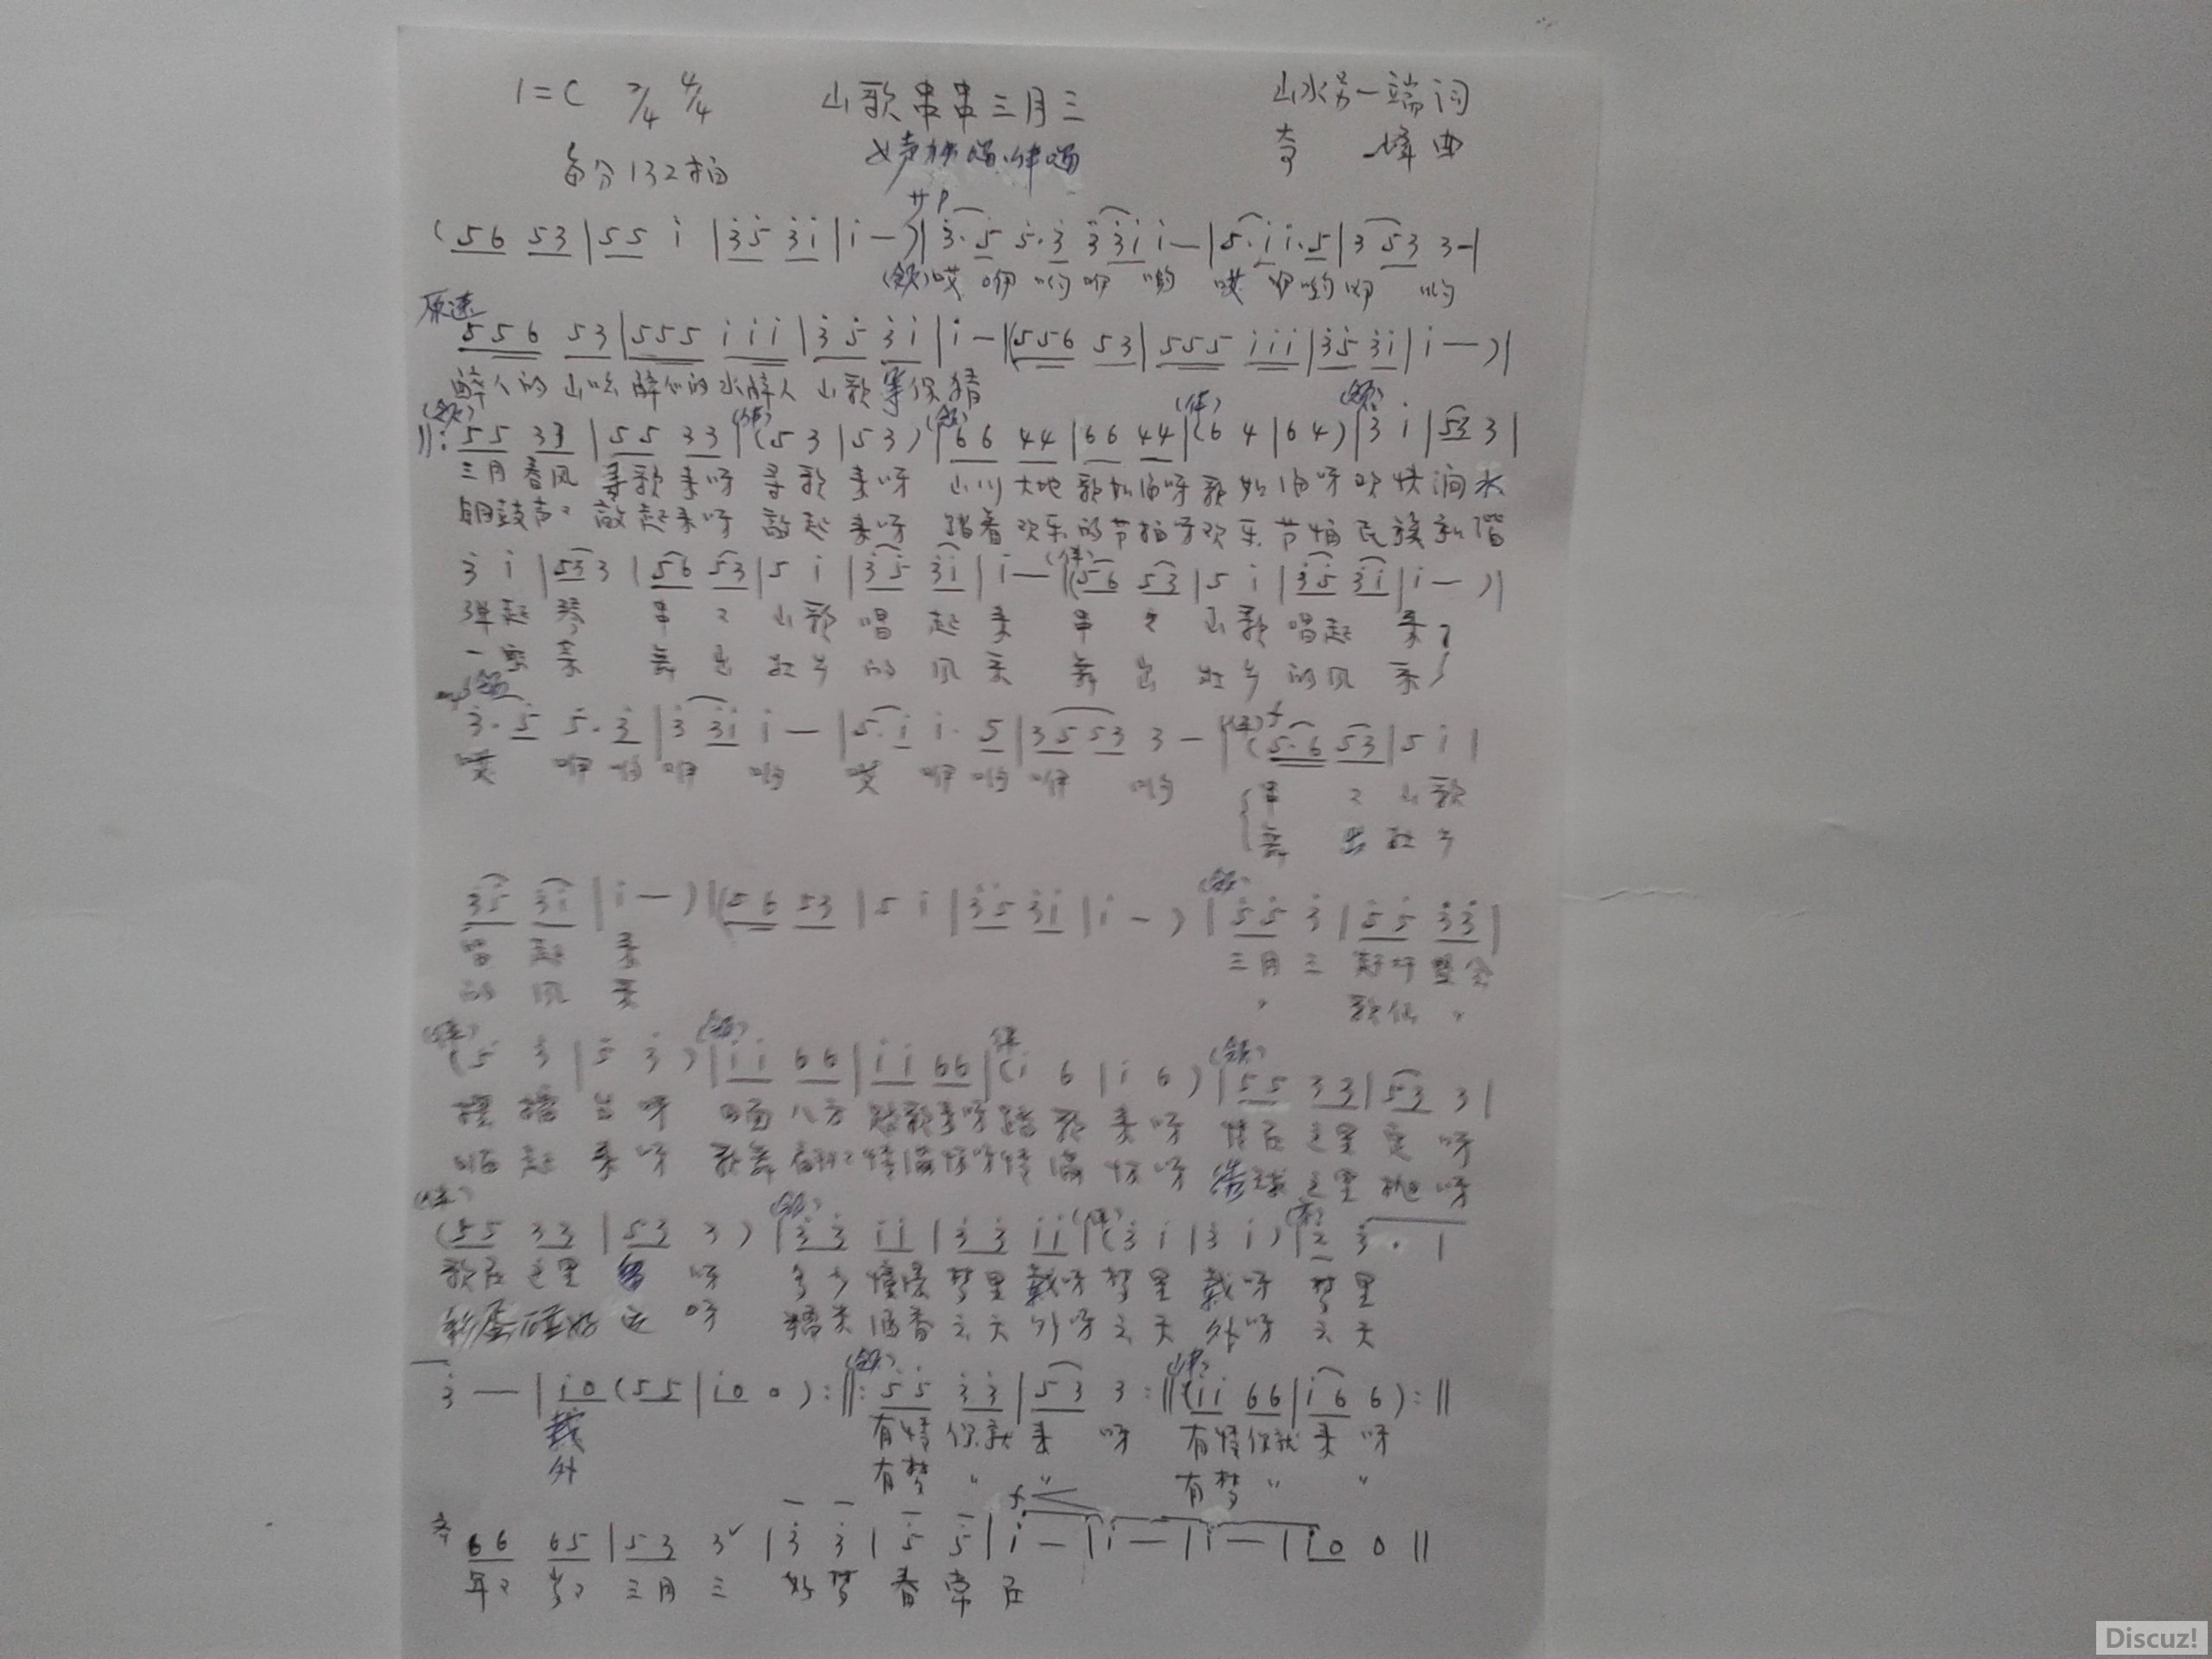 1=C 2/4 4/4 山歌串串三月三 山水另一端词
每分132拍 女声独唱.伴唱 奇峰曲
サ P
(56 53|55 i|35 3i|i —)|3·5 5·3 33i i—|5·i i·5|3 53 3—|
(领)哎 咿哟咿哟 哎咿哟咿哟
原速
556 53|555 iii|35 3i|i —|(556 53|555 iii|35 3i|i —)|
醉人的山哈醉人的水醉人山歌等你猜
(领) (伴) (领) (伴) (领)
‖:55 33|55 33|(53|53)|66 44|66 44|(6 4|6 4)|3 i|53 3|
三月春风寻歌来呀寻歌来呀 山川大地歌如海呀歌如海呀欢快涧水
铜鼓声声敲起来呀敲起来呀 踏着欢乐的节拍呀欢乐节拍民族和谐
(伴)
3 i|53 3|56 53|5 i|35 3i|i—|(56 53|5 i|35 3i|i —)|
弹起琴 串々山歌唱起来 串々山歌唱起来
一家亲 舞出壮乡的风采 舞出壮乡的风采
mp (领) (伴) f
3·5 5·3|3 3i i —|5·i i·5|3 5 53 3 —|(5·6 53|5 i|
哎 咿哟咿哟 哎咿哟咿哟
串々山歌
舞出壮乡
(领)
35 3i|i —)|(56 53|5 i|35 3i|i —)|55 3|55 33|
唱起来 三月三
的风采 〃 歌仙〃
(伴) (领) 伴 (领)
(5 3|5 3)|ii 66|ii 66|(i 6|i 6)|55 33|53 3|
摆擂台呀 四面八方踏歌来呀踏歌来呀 情在这里
起来呀 歌舞 情满怀呀情满怀呀 这里抛呀
(伴) (领) (伴) (齐)
(55 33|53 3)|33 ii|33 ii|(3 i|3 i)|2 3· |
歌在这里 呀 多少憧憬梦里载呀梦里载呀 梦里
彩蛋碰好运呀 糯米酒香云天外呀云天外呀 云天
(领) (伴)
3 —|i0(55|i0 0):‖:55 33|53 3:‖(ii 66|i6 6):‖
载 有情你就来呀 有情你就来呀
外 有梦〃 〃 有梦〃 〃
f
齐 66 65|53 3ˇ|3 3|5 5|i —|i —|i —|i0 0‖
年々岁々三月三 好梦春常在
Discuz!